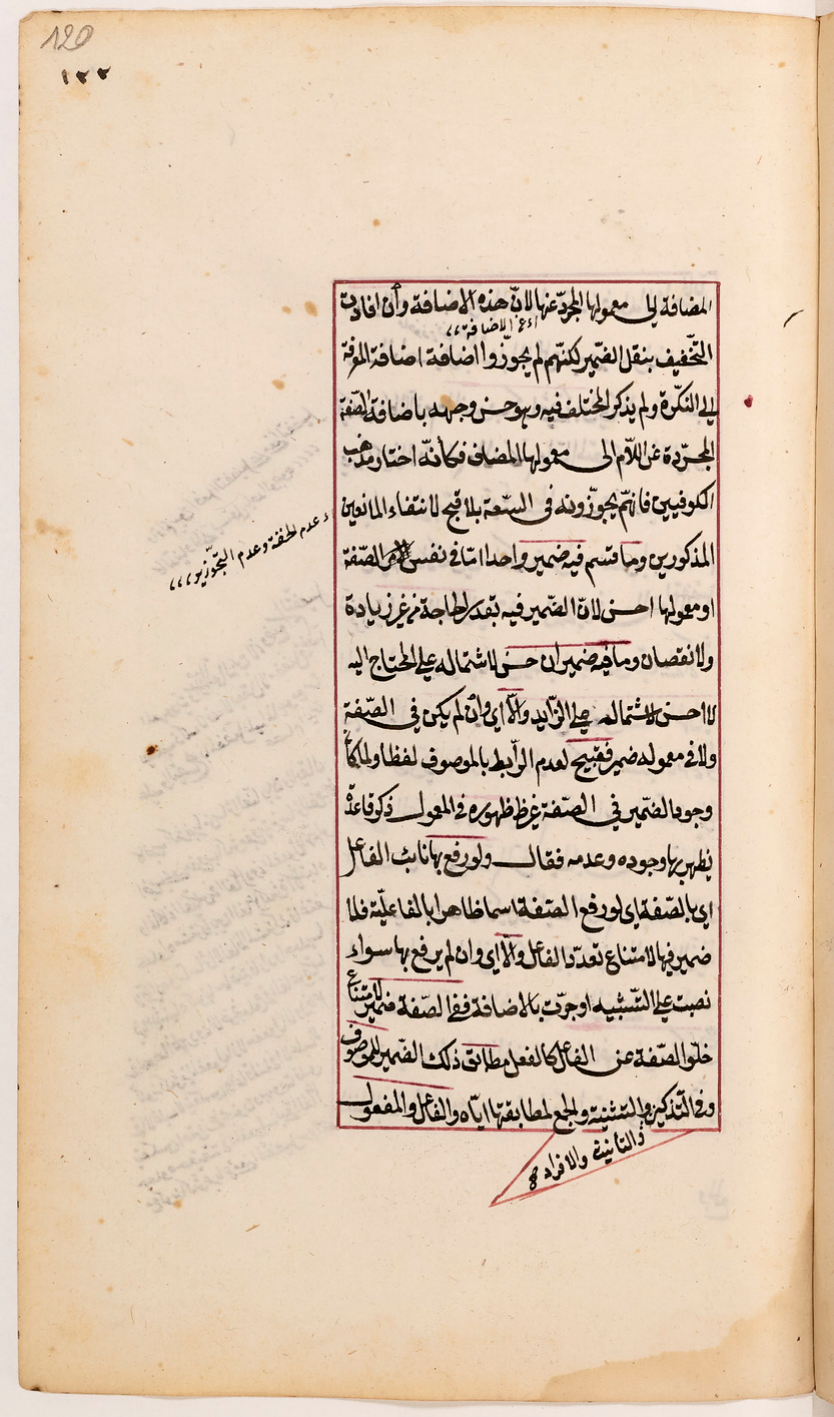 120
١٢٢
المضافة الى معمولها المجرّد عنها لانّ هذه الاضافة وأن افادت
اى الاضافة
التّخفيف بنقل الضمير لكنّهم لم يجوّزوا اضافة اضافة المعرفة
الى النكرة ولم يذكر المختلف فيه وهو حسن وجهه باضافة الصّفة
المجرّدة عن اللاّم الى معمولها المضاف فكأنّه اختار مذهب
الكوفيين فانّهم يجوّزونه فى السّعة بلا قبح لانتفاء المانعين
عدم الخفة وعدم التجوّز
المذكورين وما قسم فيه ضمير واحد امّا فى نفس الصّفة
او معمولها احسن لانّ الضمير فيه بقدر الحاجة من غير زيادة
ولا نقصان وما فيه ضميران حسن لاشتماله على المحتاج اليه
لا احسن لاشتماله على الزّايد والّا اى وأن لم يكن فى الصّفة
ولا فى معموله ضمير فقبيح لعدم الرّابط بالموصوف لفظا ولما كان
وجود الضمير فى الصّفة غير ظهوره فى المعمول ذكر قاعدة
يظهر بها وجوده وعدمه فقال ولو رفع بها نائب الفاعل
اى بالصّفة اى لو رفع الصّفة اسما ظاهرا بالفاعليّة فلا
ضمير فيها لامتناع تعدّد الفاعل والّا اى وان لم يرفع بها سواء
نصبت على التّشبيه او جرّت بالاضافة ففى الصّفة ضمير لامتناع
خلوّ الصّفة عن الفاعل كالفعل مطابق ذلك الضمير للموصوف
فى التّذكير والتّثنية والجمع لمطابقتها ايّاه والفاعل والمفعول
والتانيث والافراد